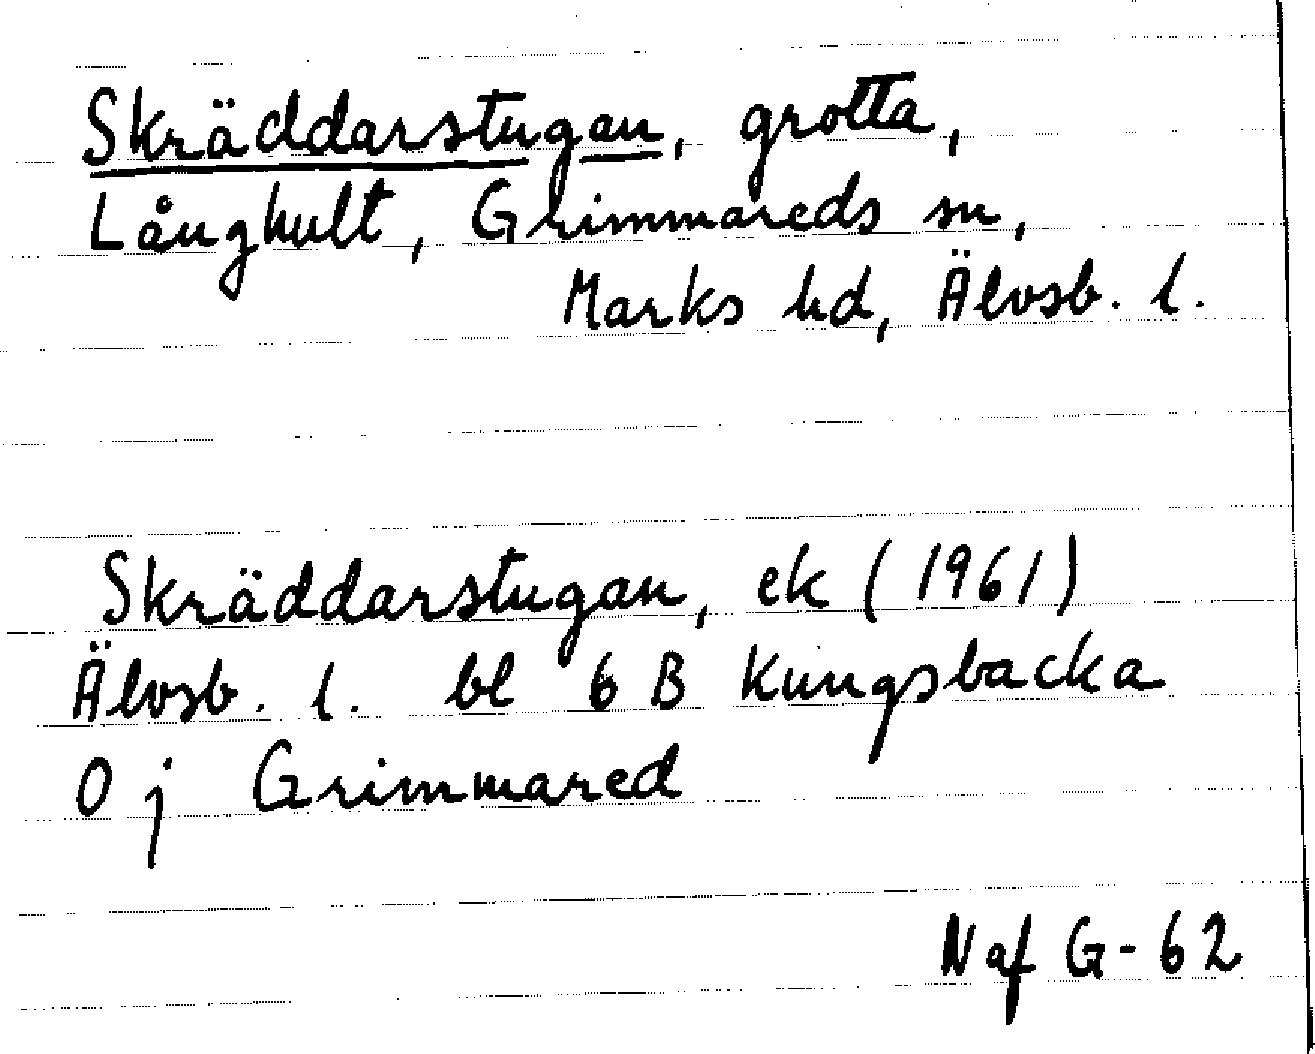 Skräddarstugan, grotta,
Långhult, Grimmareds sn,
Marks hd, Älvsb. l.
Skräddarstugan, ek (1961)
Älvsb. l. bl 6 B Kungsbacka
0 j Grimmared
Naf G-62